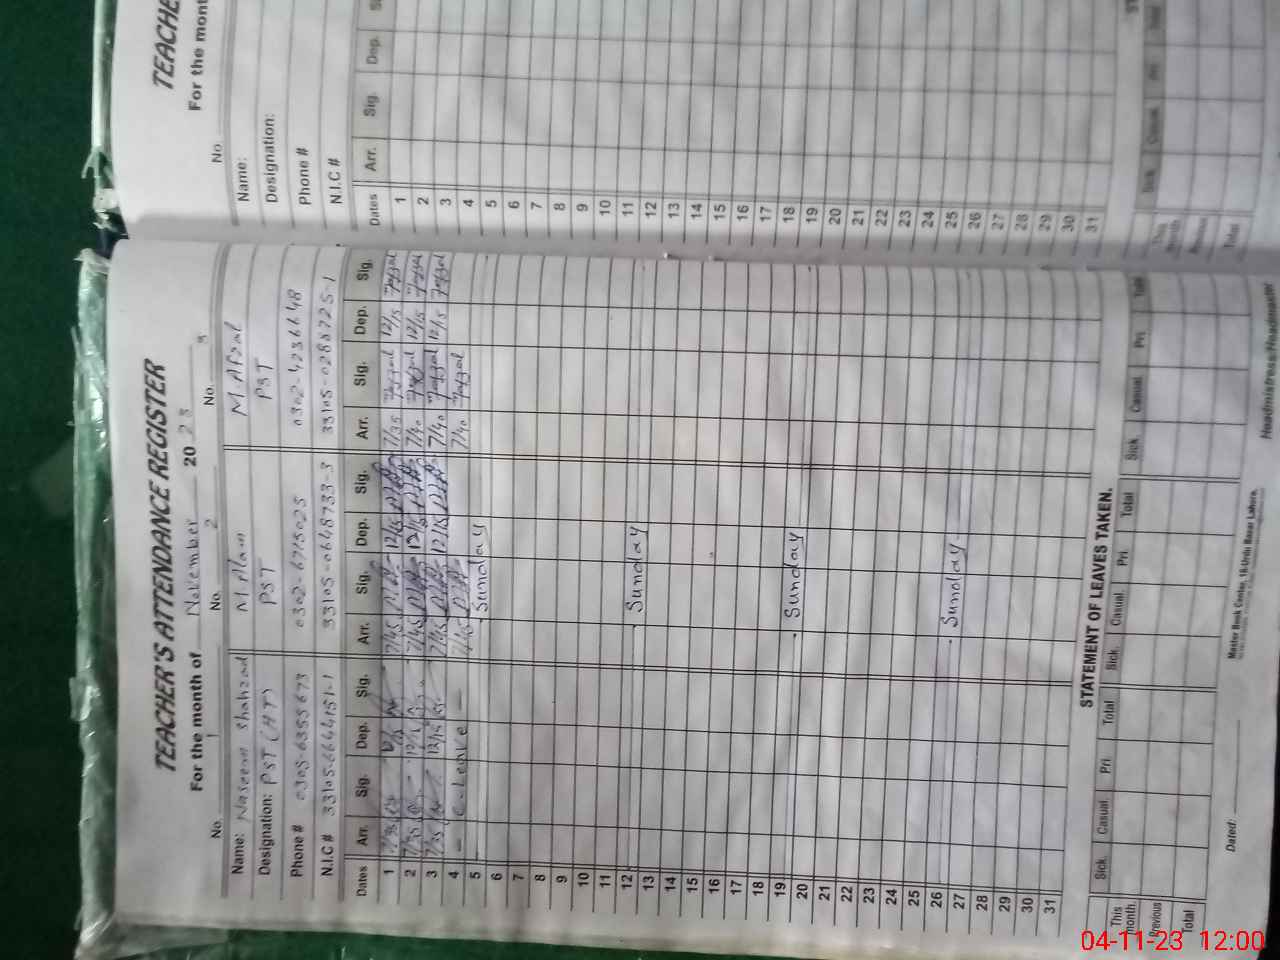 TEACHER'S ATTENDANCE REGISTER
For the month of November 2023
No. 1 No. 2 No. 3
Name: Naseem Shahzad M. Alam M. Afzal
Designation: PST (HT) PST PST
Phone # 0305-6355673 0302-6715025 0302-4236648
N.I.C # 33105-6644151-1 33105-0648733-3 33105-0288725-1
Dates Arr. Sig. Dep. Sig. Arr. Sig. Dep. Sig. Arr. Sig. Dep. Sig.
1 7/35 7/45 12/15 7/35 12/15
2 7/35 12/15 7/45 12/15 7/40 12/15
3 7/35 12/15 7/45 12/15 7/40 12/15
4 - C-Leave - 7/45 7/40
5 Sunday
6
7
8
9
10
11
12 Sunday
13
14
15
16
17
18
19 Sunday
20
21
22
23
24
25
26 Sunday
27
28
29
30
31
STATEMENT OF LEAVES TAKEN.
Sick. Casual. Pri. Total Sick. Casual. Pri. Total Sick Casual Pri Total
This month.
Previous
Total
Dated:
Master Book Center, 16-Urdu Bazar Lahore.
Headmistress/Headmaster
TEACHE
For the mont
No.
Name:
Designation:
Phone #
N.I.C #
Dates Arr. Sig. Dep.
1
2
3
4
5
6
7
8
9
10
11
12
13
14
15
16
17
18
19
20
21
22
23
24
25
26
27
28
29
30
31
This month
Total
04-11-23 12:00